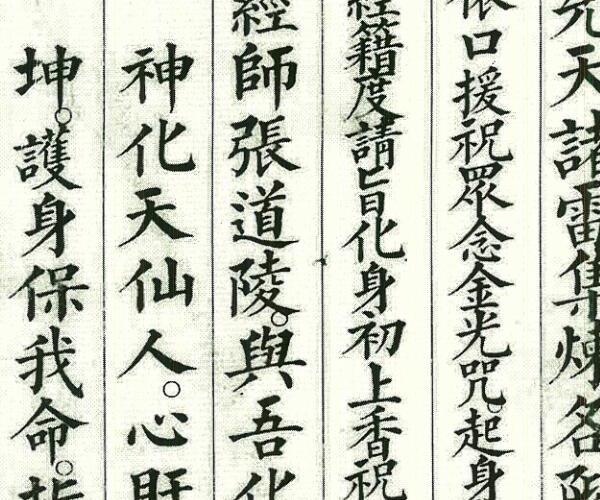 天諸雷集煉名
口援祝眾念金光咒起身
籍度請旨化身初上香祝
經師張道陵。與吾化
神化天仙人。心肝
坤。護身保我命。指